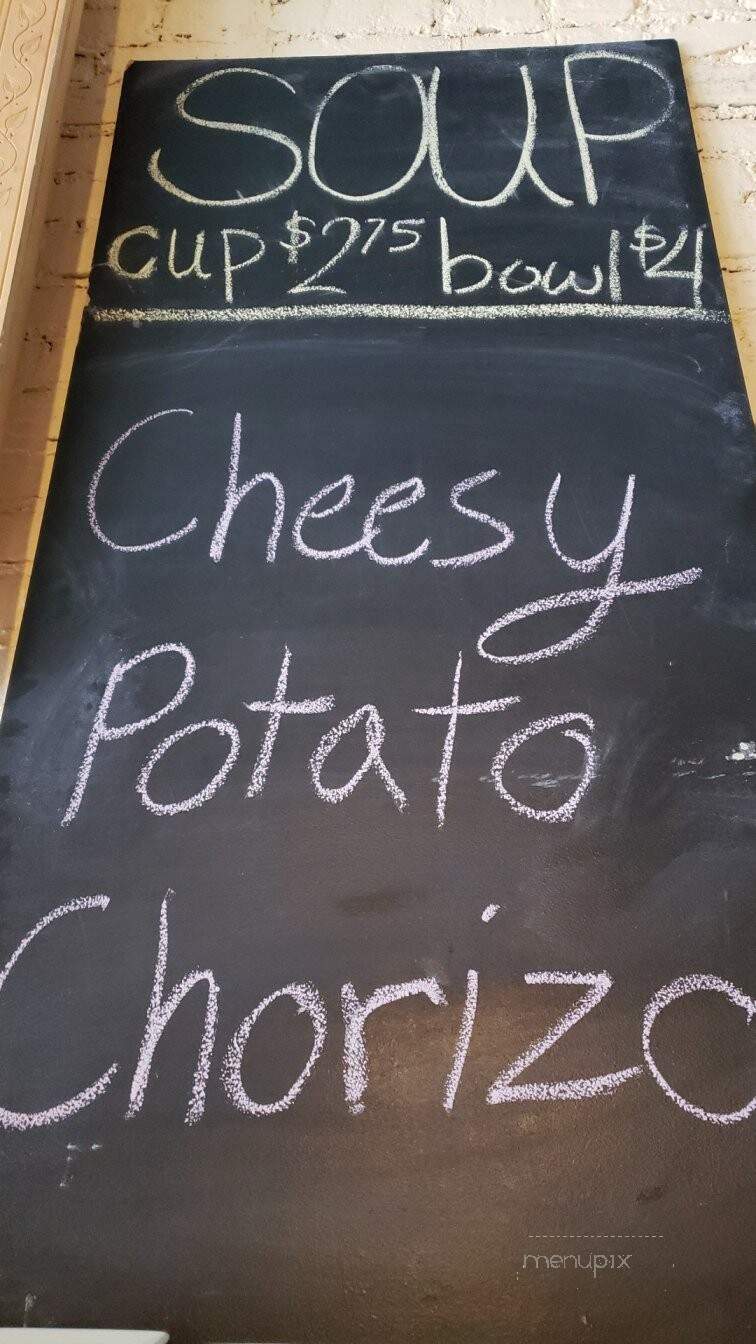 SOUP
cup $2.75 bowl $4
Cheesy
Potato
Chorizo
menupix